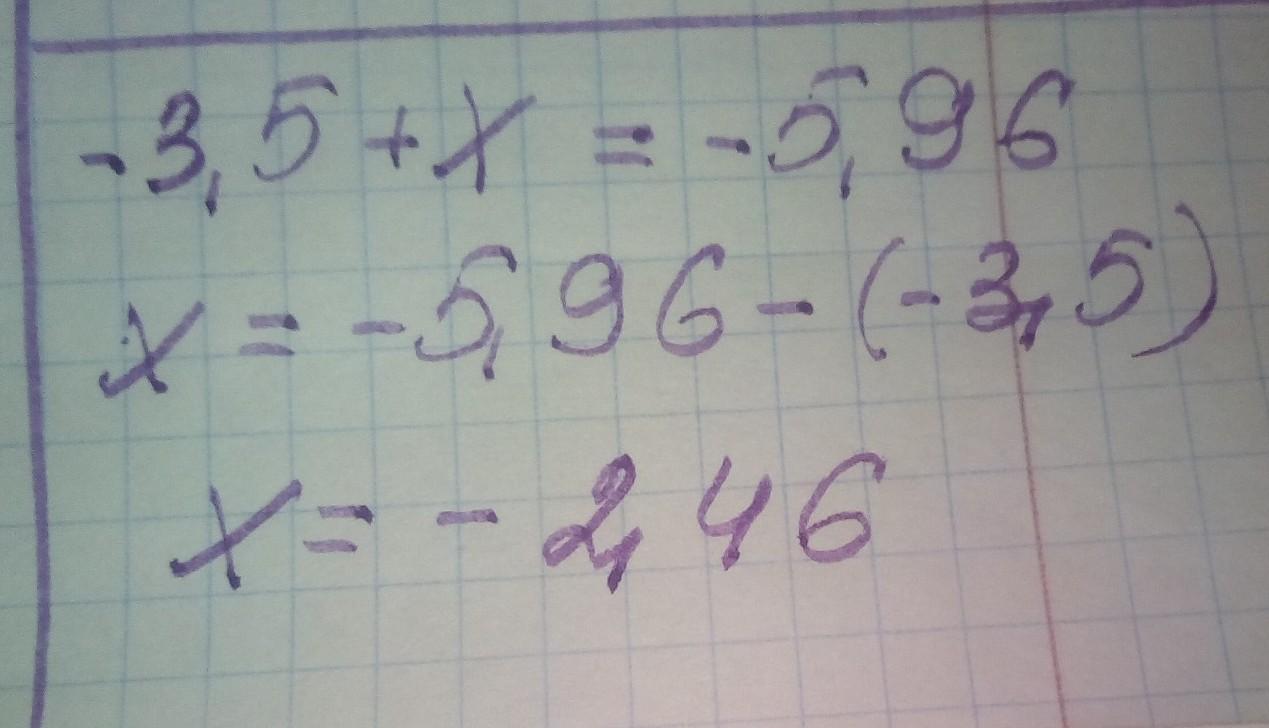 -3,5+x=-5,96
x=-5,96-(-3,5)
x=-2,46